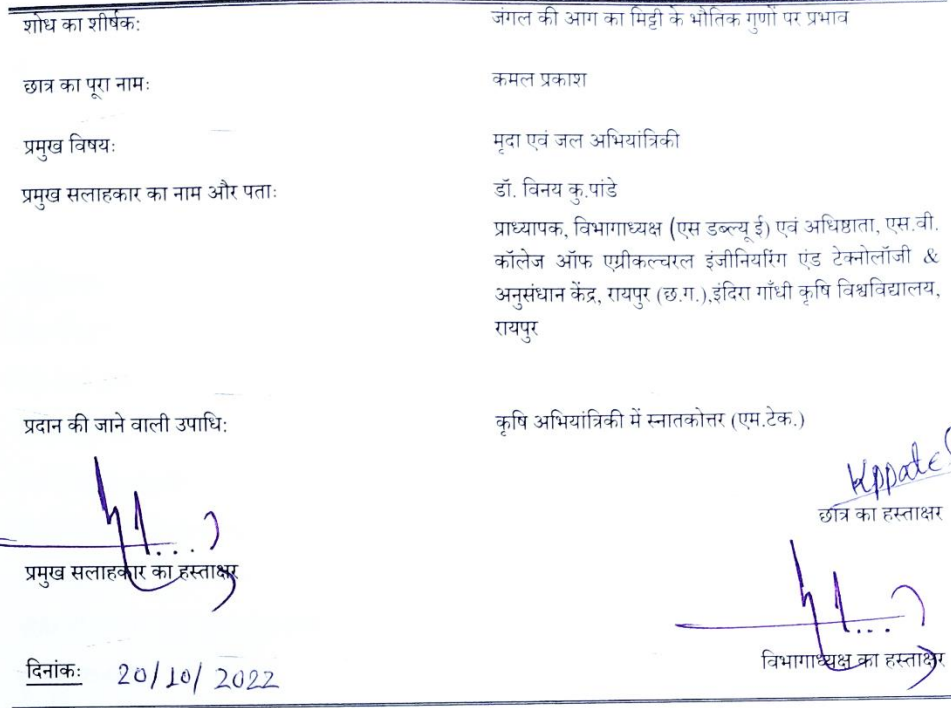 शोध का शीर्षक: जंगल की आग का मिट्टी के भौतिक गुणों पर प्रभाव
छात्र का पूरा नाम: कमल प्रकाश
प्रमुख विषय: मृदा एवं जल अभियांत्रिकी
प्रमुख सलाहकार का नाम और पता: डॉ. विनय कु.पांडे
प्राध्यापक, विभागाध्यक्ष (एस डब्ल्यू ई) एवं अधिष्ठाता, एस.वी.
कॉलेज ऑफ एग्रीकल्चरल इंजीनियरिंग एंड टेक्नोलॉजी &
अनुसंधान केंद्र, रायपुर (छ.ग.),इंदिरा गाँधी कृषि विश्वविद्यालय,
रायपुर
प्रदान की जाने वाली उपाधि: कृषि अभियांत्रिकी में स्नातकोत्तर (एम.टेक.)
Kppatel
छात्र का हस्ताक्षर
प्रमुख सलाहकार का हस्ताक्षर
विभागाध्यक्ष का हस्ताक्षर
दिनांक: 20/10/2022